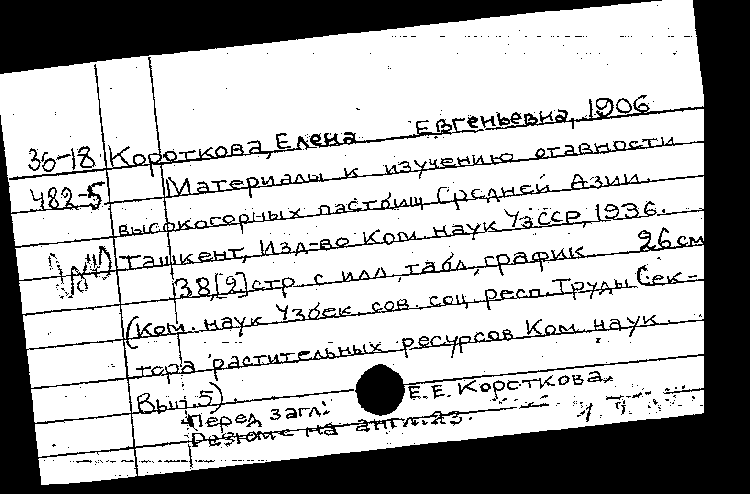 36-18 Короткова, Елена Евгеньевна, 1906
482-5 Материалы к изучению отавности
высокогорных пастбищ Средней Азии.
Ташкент, Изд-во Ком. наук УзССР, 1936.
38,[2] стр. с илл., табл., график. 26 см
(Ком. наук Узбек. сов. соц. респ. Труды Сек-
тора растительных ресурсов Ком. наук.
Вып. 5).
Перед загл.: Е.Е. Короткова.
Резюме на англ. яз.